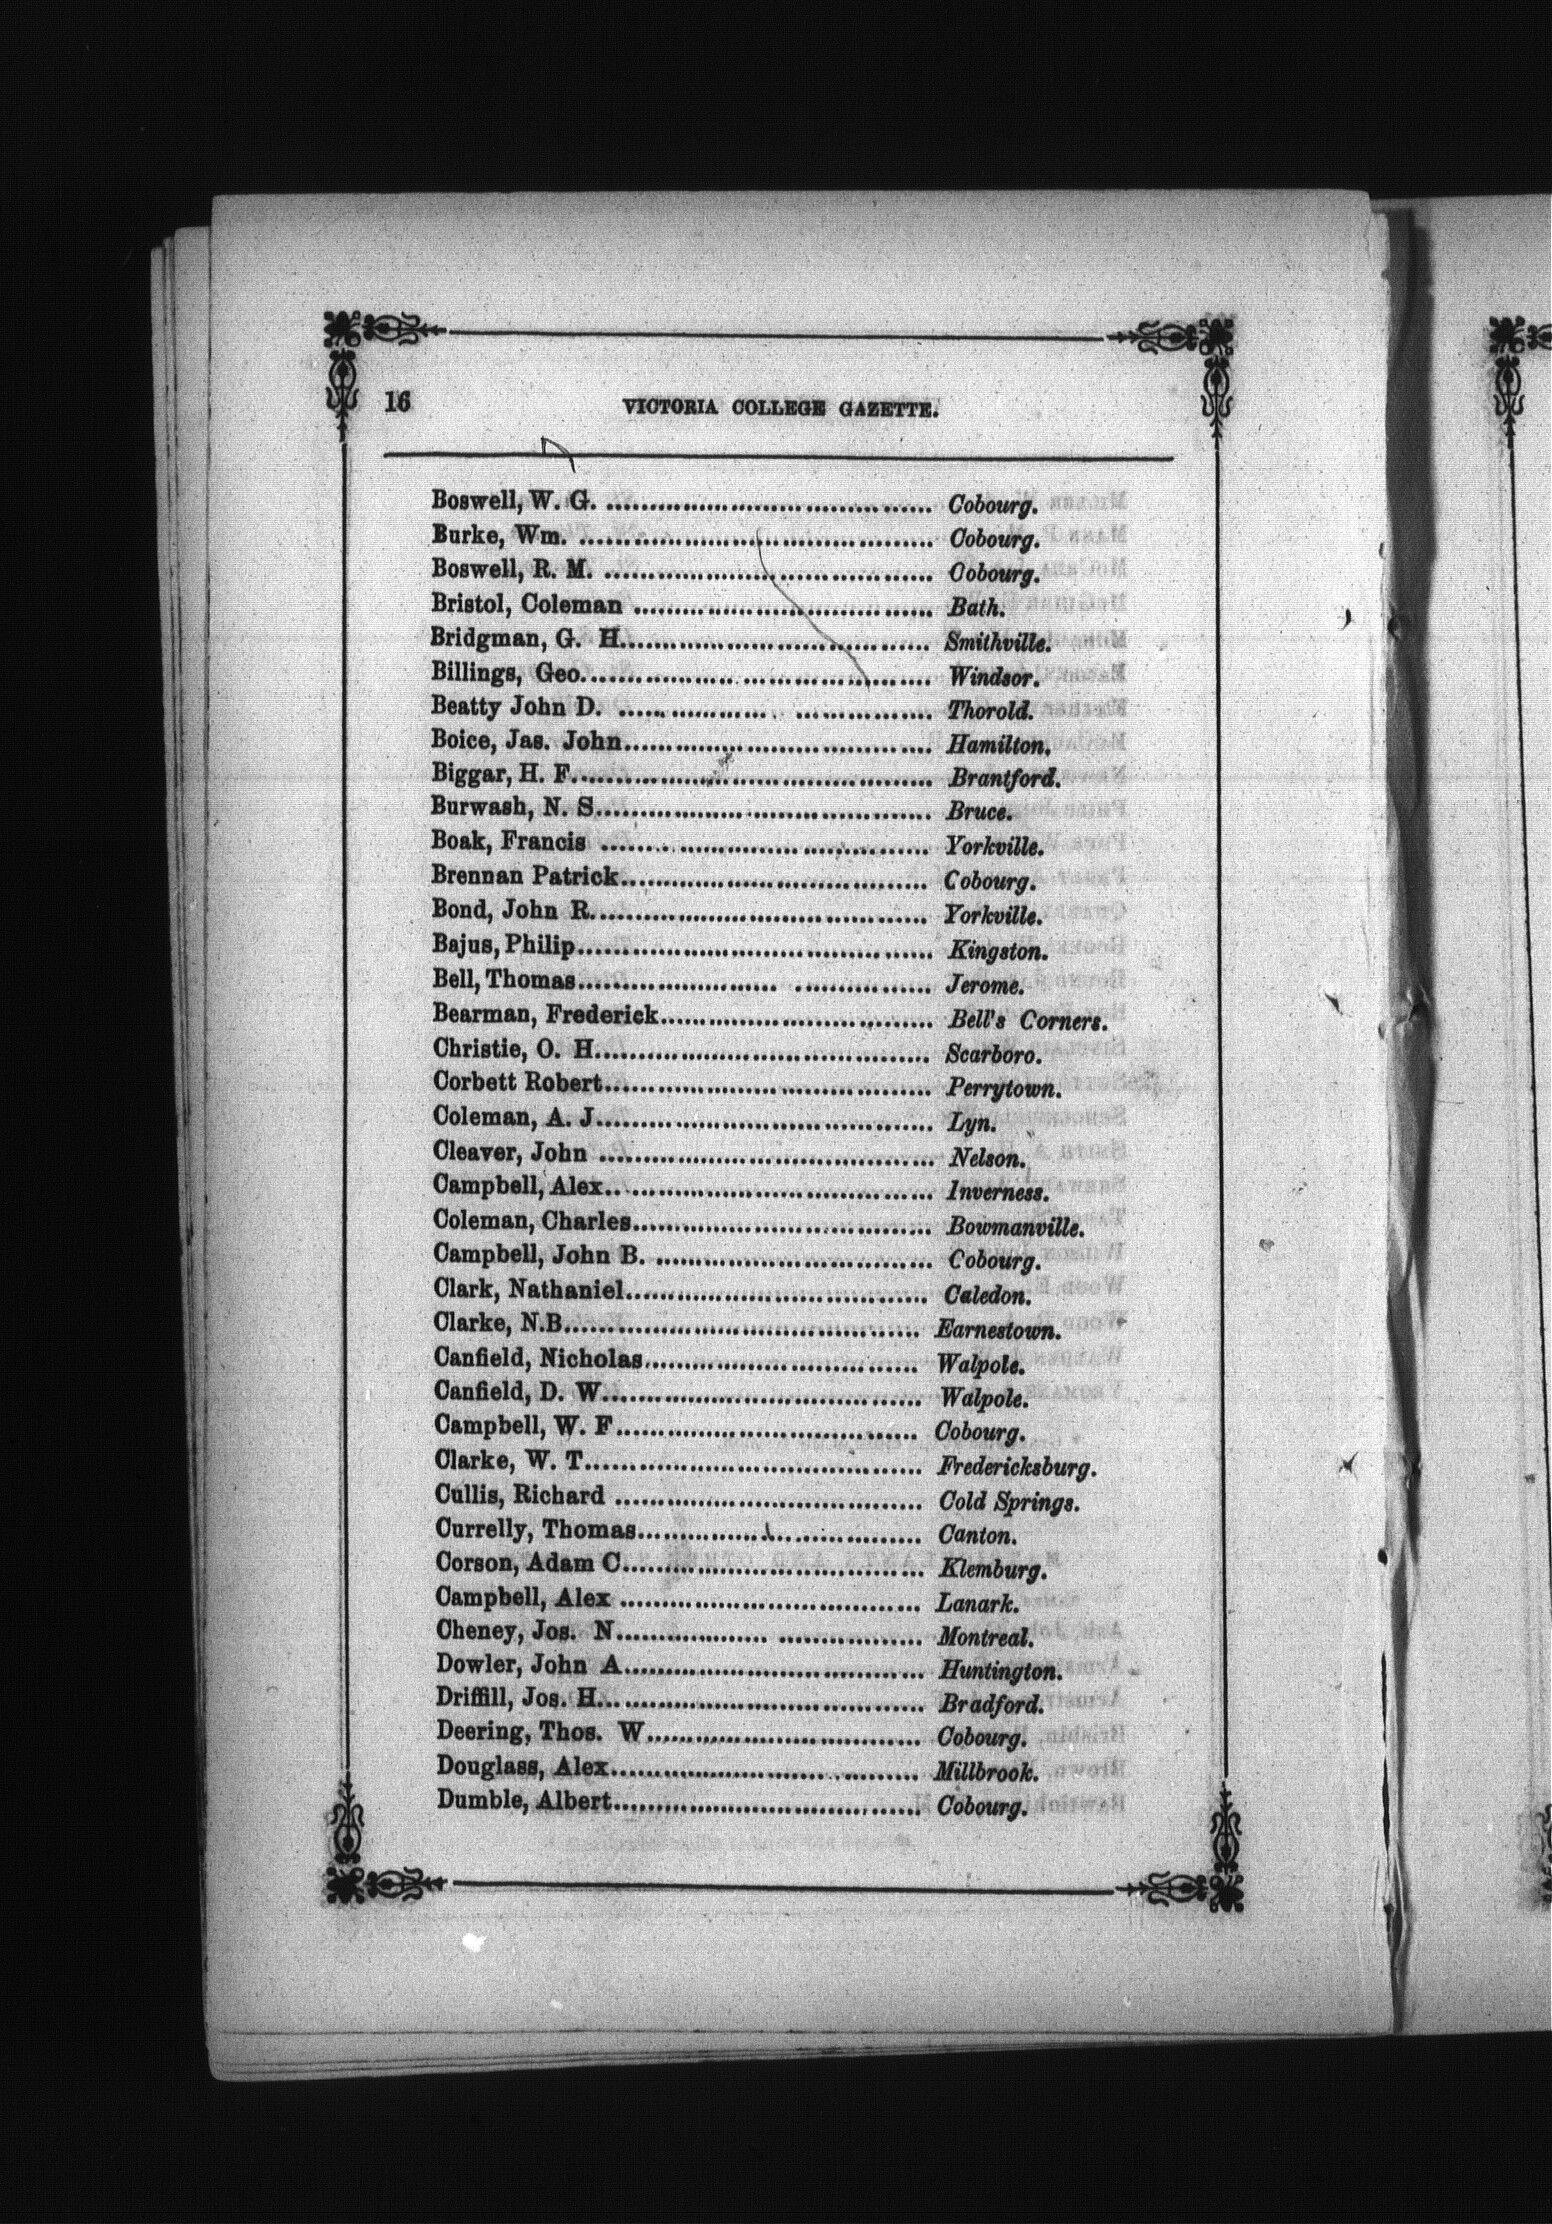 16
VICTORIA COLLEGE GAZETTE.
Boswell, W. G. .................................... Cobourg.
Burke, Wm. .................................... Cobourg.
Boswell, R. M. .................................... Cobourg.
Bristol, Coleman .................................... Bath.
Bridgman, G. H.................................... Smithville.
Billings, Geo.................................... Windsor.
Beatty John D. .................................... Thorold.
Boice, Jas. John.................................... Hamilton.
Biggar, H. F.................................... Brantford.
Burwash, N. S.................................... Bruce.
Boak, Francis .................................... Yorkville.
Brennan Patrick.................................... Cobourg.
Bond, John R.................................... Yorkville.
Bajus, Philip.................................... Kingston.
Bell, Thomas.................................... Jerome.
Bearman, Frederick.................................... Bell's Corners.
Christie, O. H.................................... Scarboro.
Corbett Robert.................................... Perrytown.
Coleman, A. J.................................... Lyn.
Cleaver, John .................................... Nelson.
Campbell, Alex.................................... Inverness.
Coleman, Charles.................................... Bowmanville.
Campbell, John B. .................................... Cobourg.
Clark, Nathaniel.................................... Caledon.
Clarke, N.B.................................... Earnestown.
Canfield, Nicholas.................................... Walpole.
Canfield, D. W.................................... Walpole.
Campbell, W. F.................................... Cobourg.
Clarke, W. T.................................... Fredericksburg.
Cullis, Richard .................................... Cold Springs.
Currelly, Thomas.................................... Canton.
Corson, Adam C.................................... Klemburg.
Campbell, Alex .................................... Lanark.
Cheney, Jos. N.................................... Montreal.
Dowler, John A.................................... Huntington.
Driffill, Jos. H.................................... Bradford.
Deering, Thos. W.................................... Cobourg.
Douglass, Alex.................................... Millbrook.
Dumble, Albert.................................... Cobourg.